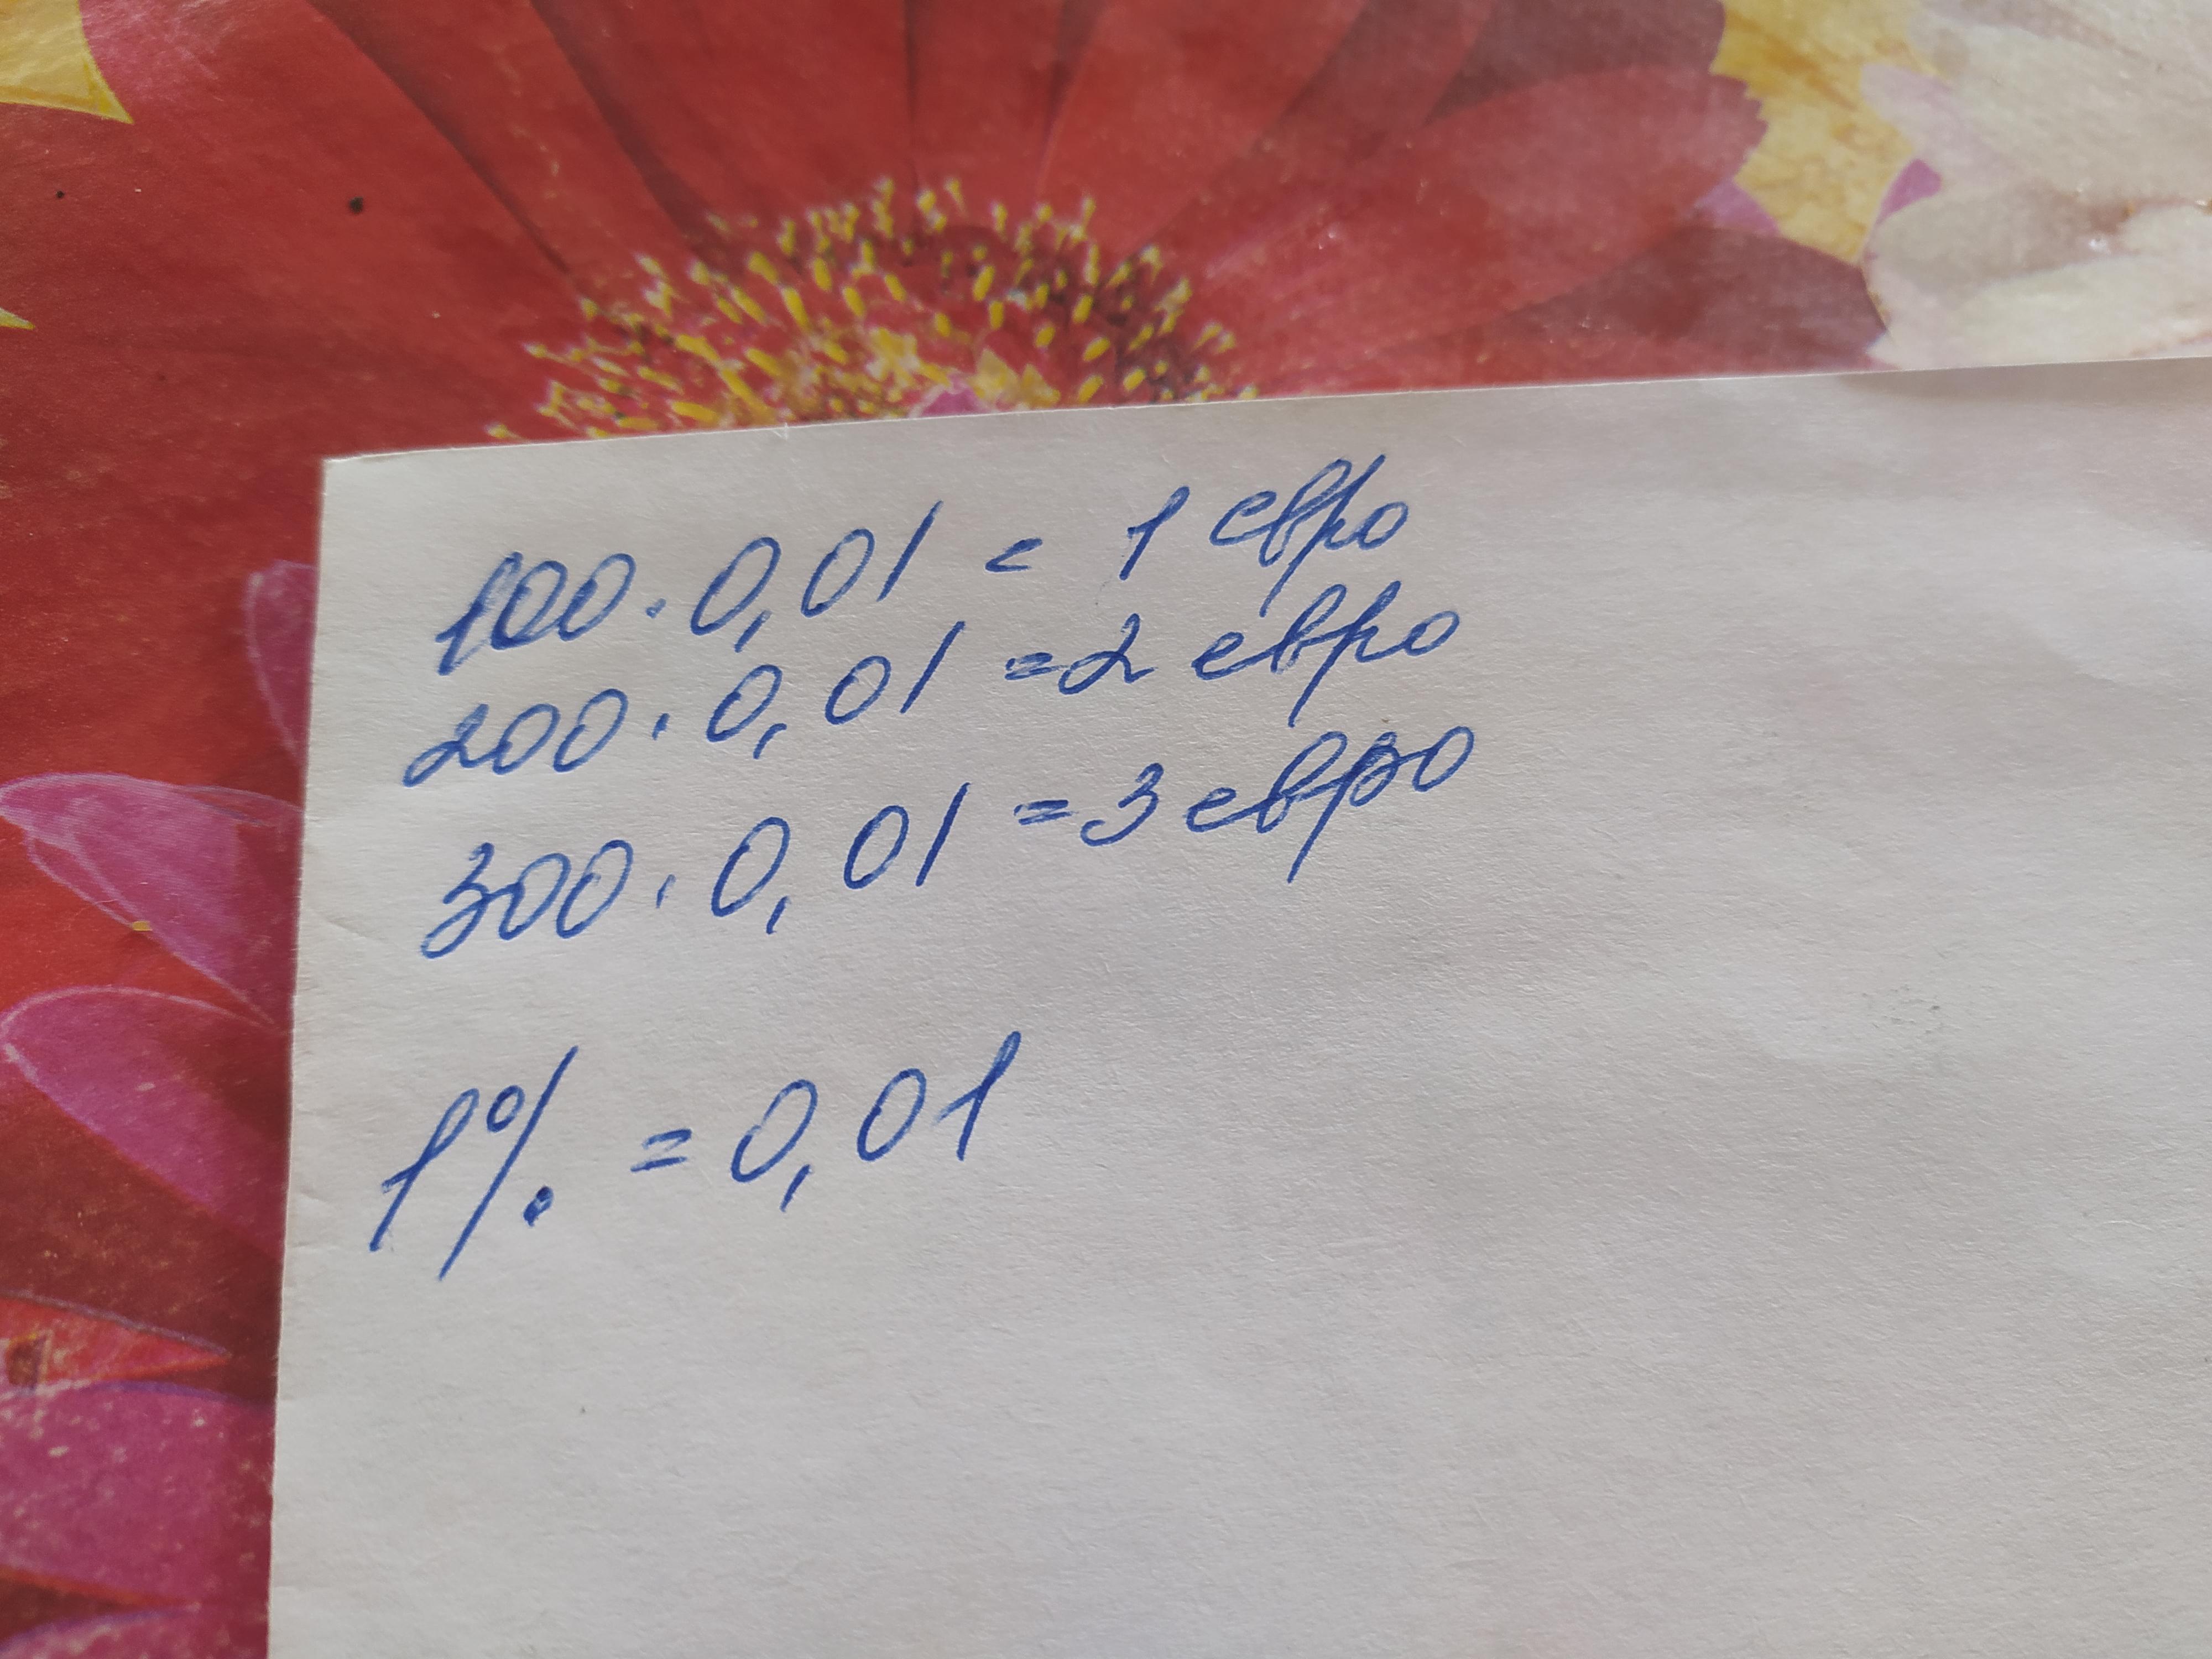 100 · 0,01 = 1 евро
200 · 0,01 = 2 евро
300 · 0,01 = 3 евро
1% = 0,01